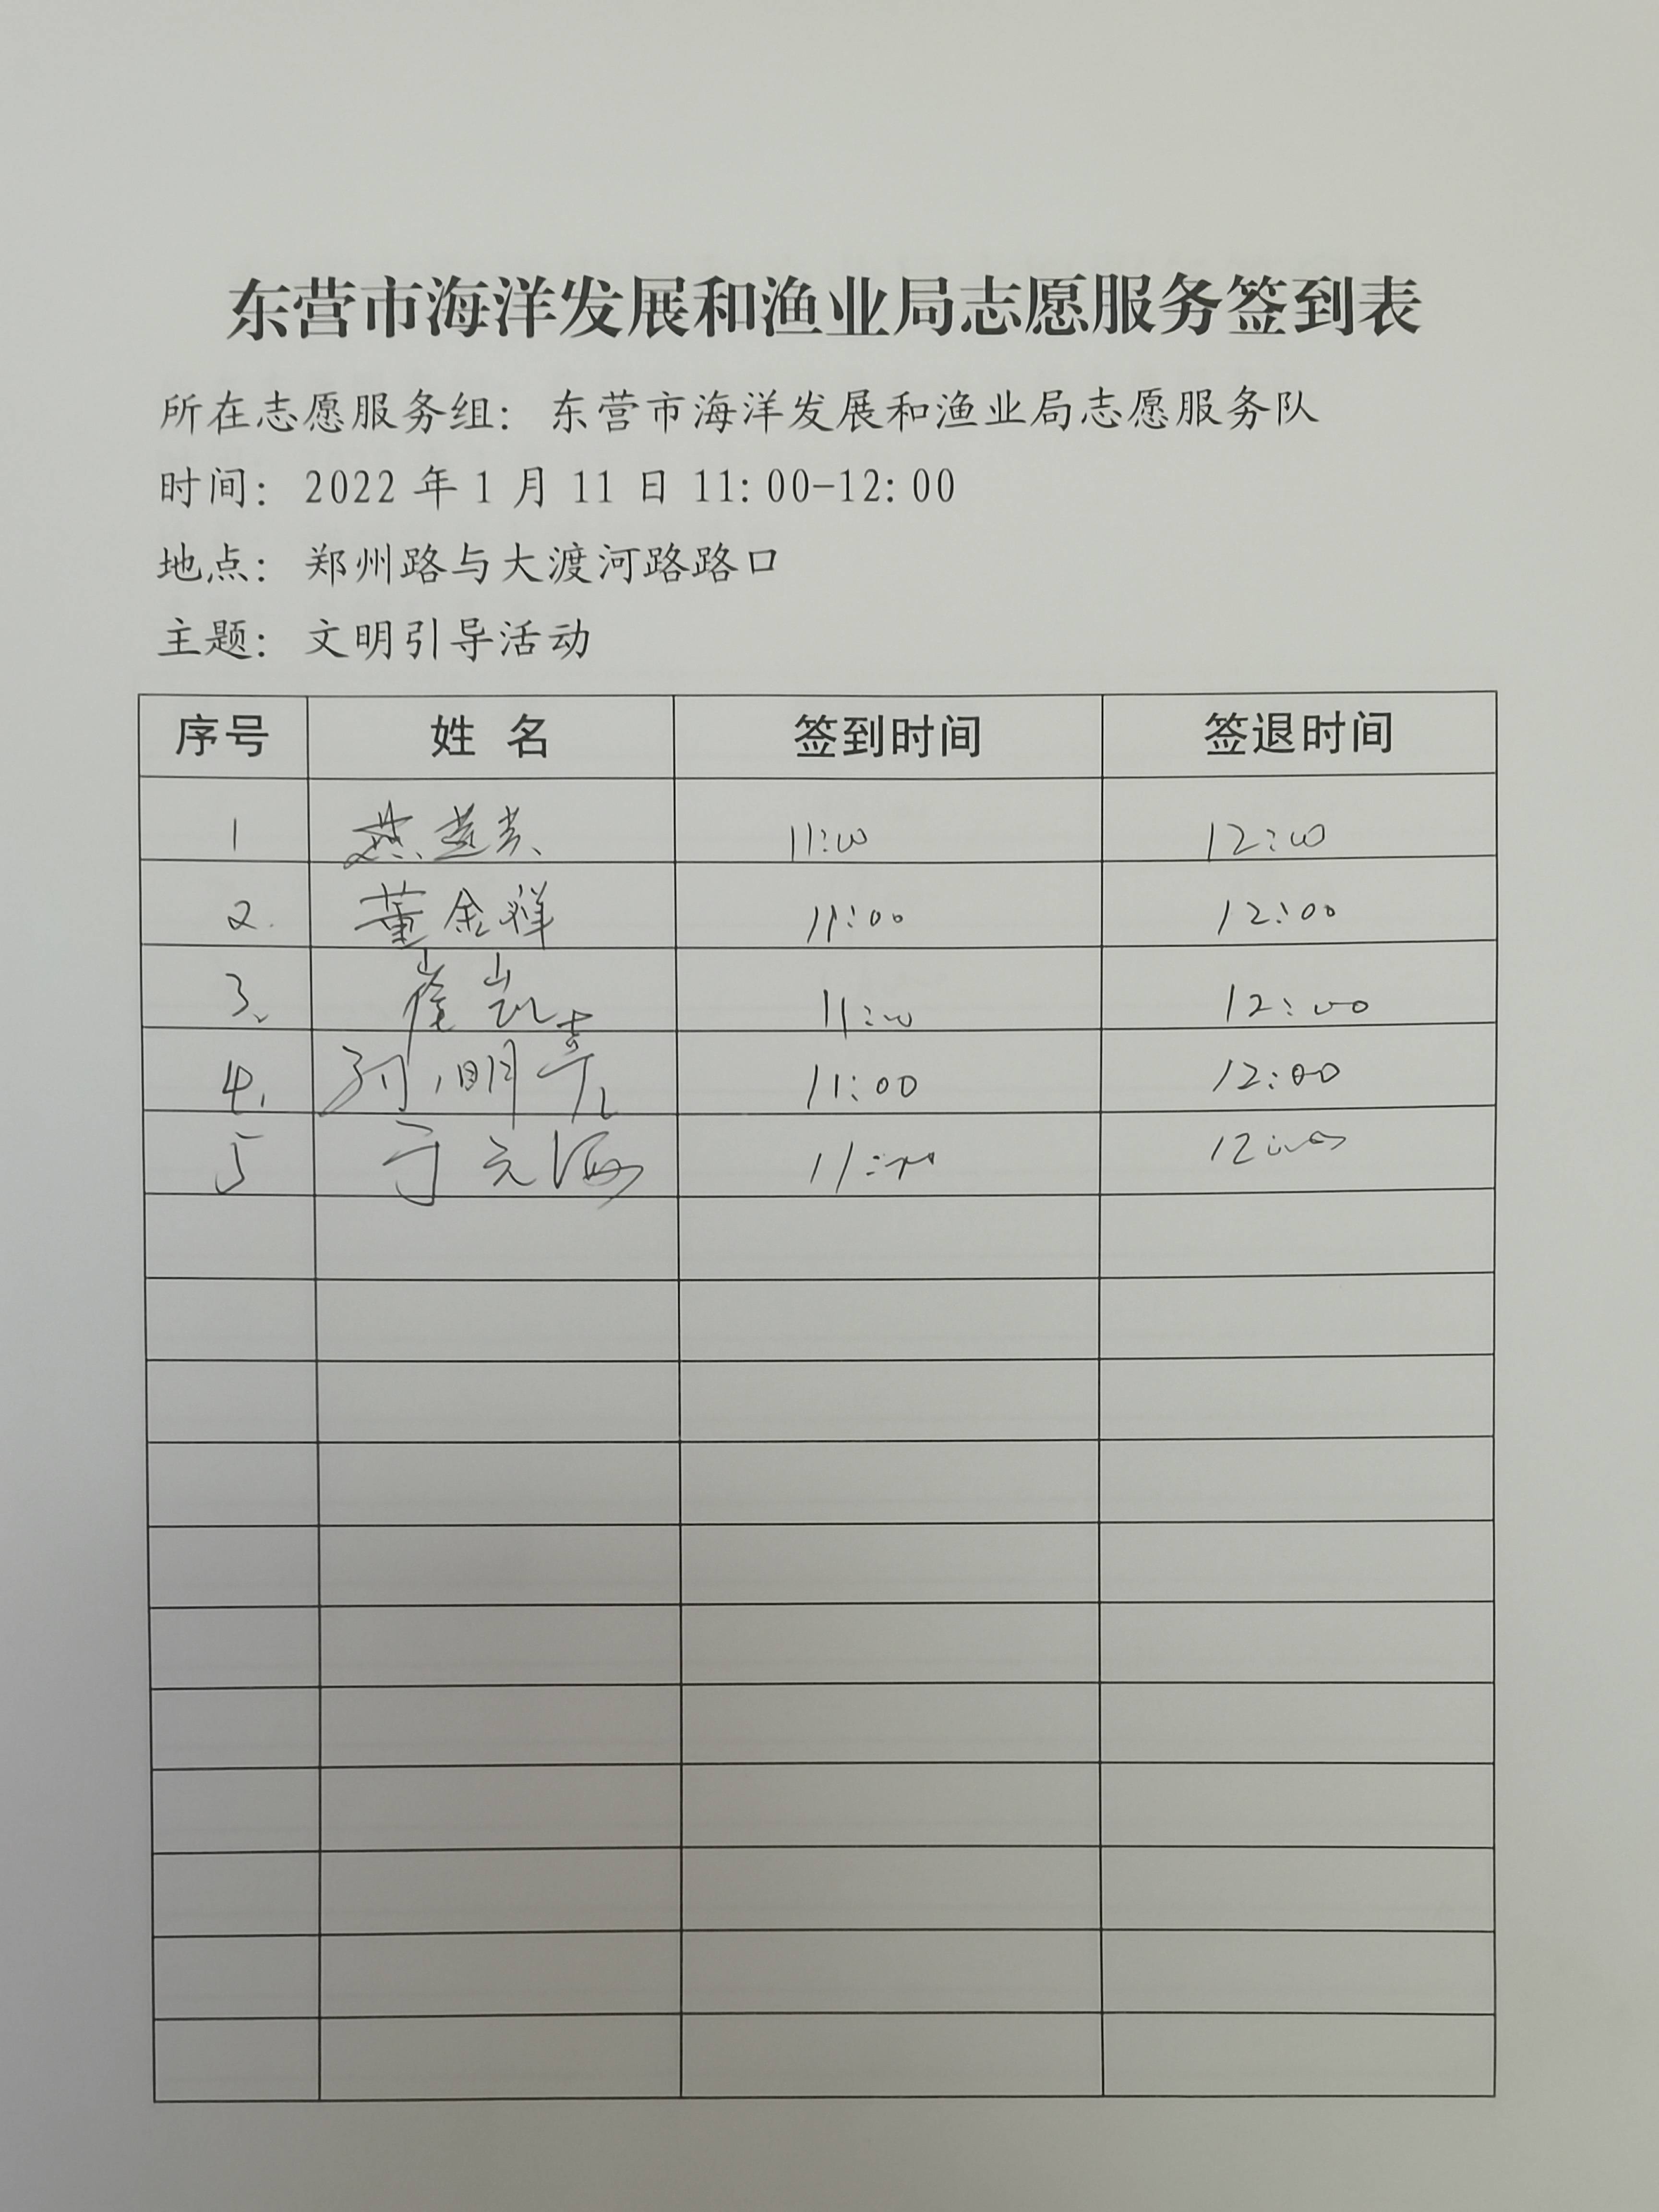 东营市海洋发展和渔业局志愿服务签到表
所在志愿服务组：东营市海洋发展和渔业局志愿服务队
时间：2022年1月11日11:00-12:00
地点：郑州路与大渡河路路口
主题：文明引导活动
序号 姓名 签到时间 签退时间
1 11:00 12:00
2. 董金祥 11:00 12:00
3、 崔凯 11:00 12:00
4. 孙明亮 11:00 12:00
5 于元海 11:00 12:00